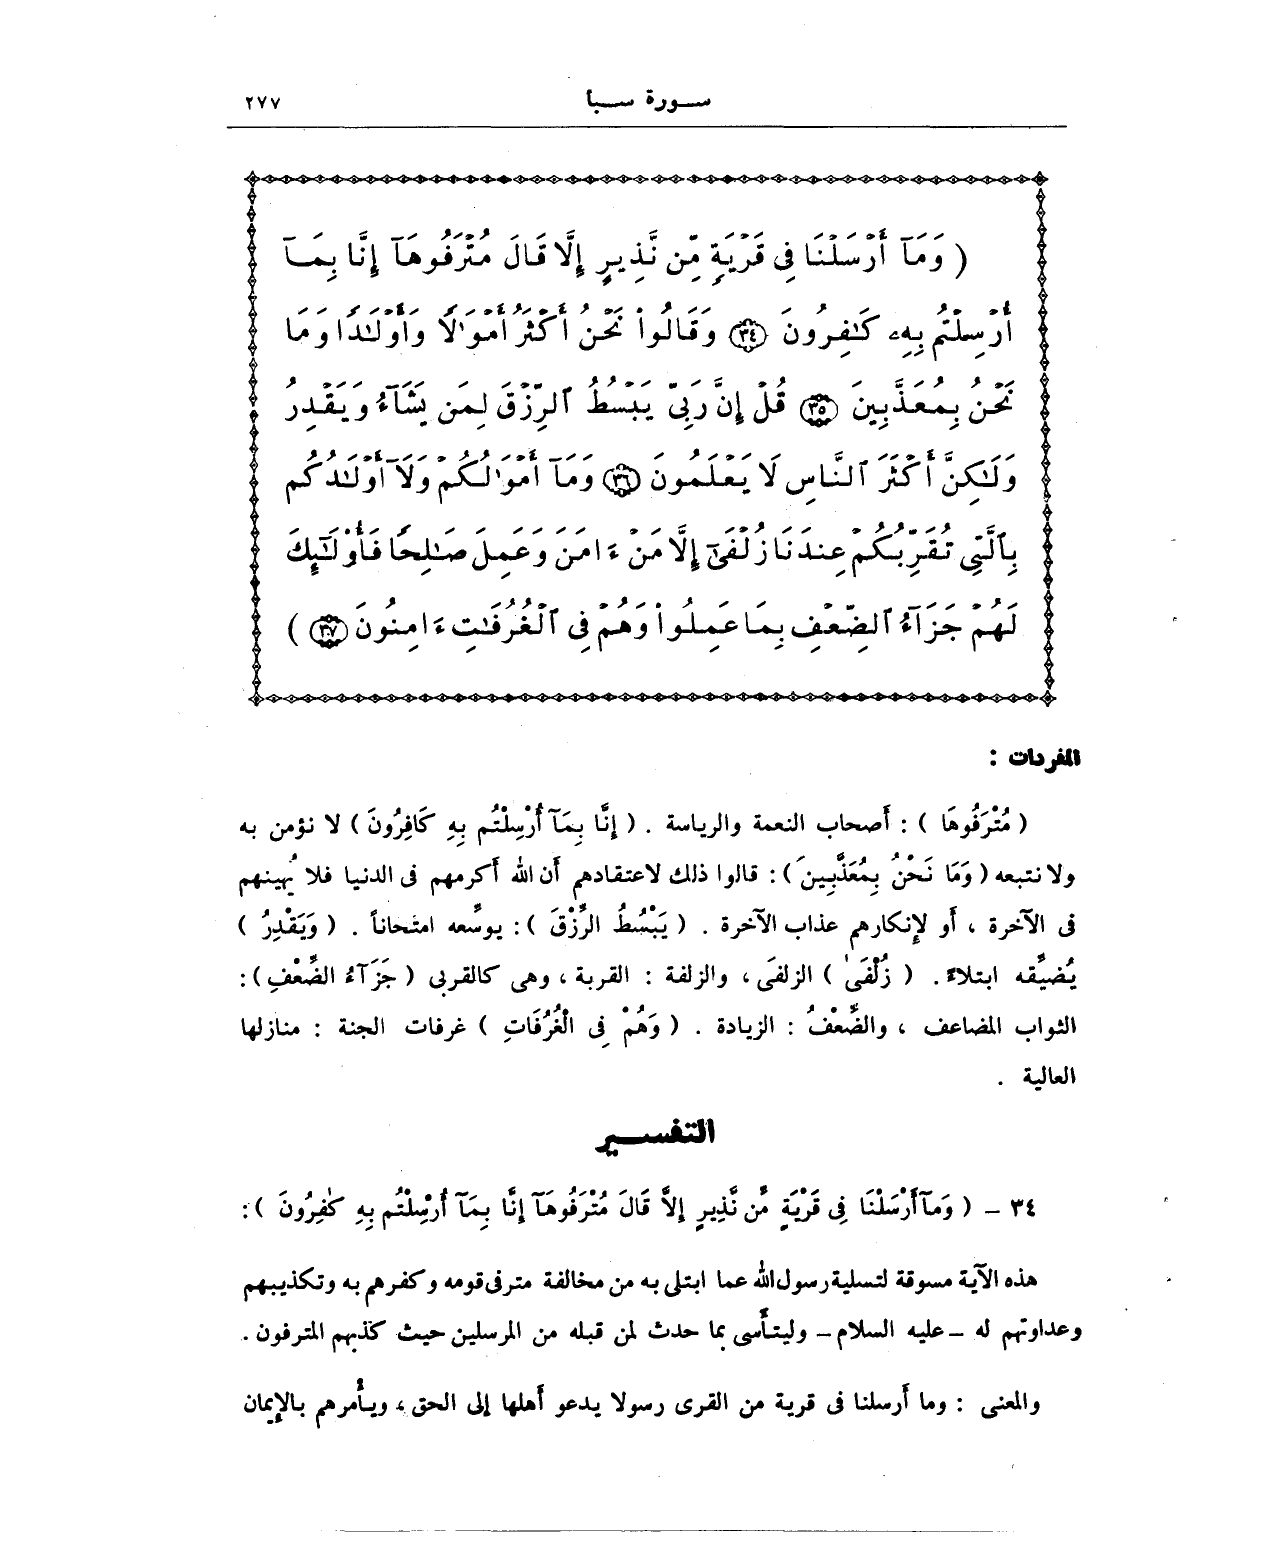 سورة سبأ ٢٧٧
( وَمَآ أَرْسَلْنَا فِى قَرْيَةٍ مِّن نَّذِيرٍ إِلَّا قَالَ مُتْرَفُوهَآ إِنَّا بِمَآ
أُرْسِلْتُم بِهِۦ كَـٰفِرُونَ ٣٤ وَقَالُوا۟ نَحْنُ أَكْثَرُ أَمْوَٰلًا وَأَوْلَـٰدًا وَمَا
نَحْنُ بِمُعَذَّبِينَ ٣٥ قُلْ إِنَّ رَبِّى يَبْسُطُ ٱلرِّزْقَ لِمَن يَشَآءُ وَيَقْدِرُ
وَلَـٰكِنَّ أَكْثَرَ ٱلنَّاسِ لَا يَعْلَمُونَ ٣٦ وَمَآ أَمْوَٰلُكُمْ وَلَآ أَوْلَـٰدُكُم
بِٱلَّتِى تُقَرِّبُكُمْ عِندَنَا زُلْفَىٰٓ إِلَّا مَنْ ءَامَنَ وَعَمِلَ صَـٰلِحًا فَأُو۟لَـٰٓئِكَ
لَهُمْ جَزَآءُ ٱلضِّعْفِ بِمَا عَمِلُوا۟ وَهُمْ فِى ٱلْغُرُفَـٰتِ ءَامِنُونَ ٣٧ )
المفردات :
( مُتْرَفُوهَا ) : أصحاب النعمة والرياسة . ( إِنَّا بِمَآ أُرْسِلْتُم بِهِ كَافِرُونَ ) لا نؤمن به
ولا نتبعه ( وَمَا نَحْنُ بِمُعَذَّبِينَ ) : قالوا ذلك لاعتقادهم أن الله أكرمهم فى الدنيا فلا يُهينهم
فى الآخرة ، أو لإنكارهم عذاب الآخرة . ( يَبْسُطُ الرِّزْقَ ) : يوسِّعه امتحاناً . ( وَيَقْدِرُ )
يُضيِّقه ابتلاءً . ( زُلْفَىٰ ) الزلفَى ، والزلفة : القربة ، وهى كالقربى ( جَزَآءُ الضِّعْفِ ) :
الثواب المضاعف ، والضِّعْفُ : الزيادة . ( وَهُمْ فِى الْغُرُفَاتِ ) غرفات الجنة : منازلها
العالية .
التفسير
٣٤ – ( وَمَآ أَرْسَلْنَا فِى قَرْيَةٍ مِّن نَّذِيرٍ إِلاَّ قَالَ مُتْرَفُوهَآ إِنَّا بِمَآ أُرْسِلْتُم بِهِ كَٰفِرُونَ ) :
هذه الآية مسوقة لتسلية رسول الله عما ابتلى به من مخالفة مترفى قومه وكفرهم به وتكذيبهم
وعداوتهم له – عليه السلام – وليتأسى بما حدث لمن قبله من المرسلين حيث كذبهم المترفون .
والمعنى : وما أرسلنا فى قرية من القرى رسولا يدعو أهلها إلى الحق ، ويأمرهم بالإيمان